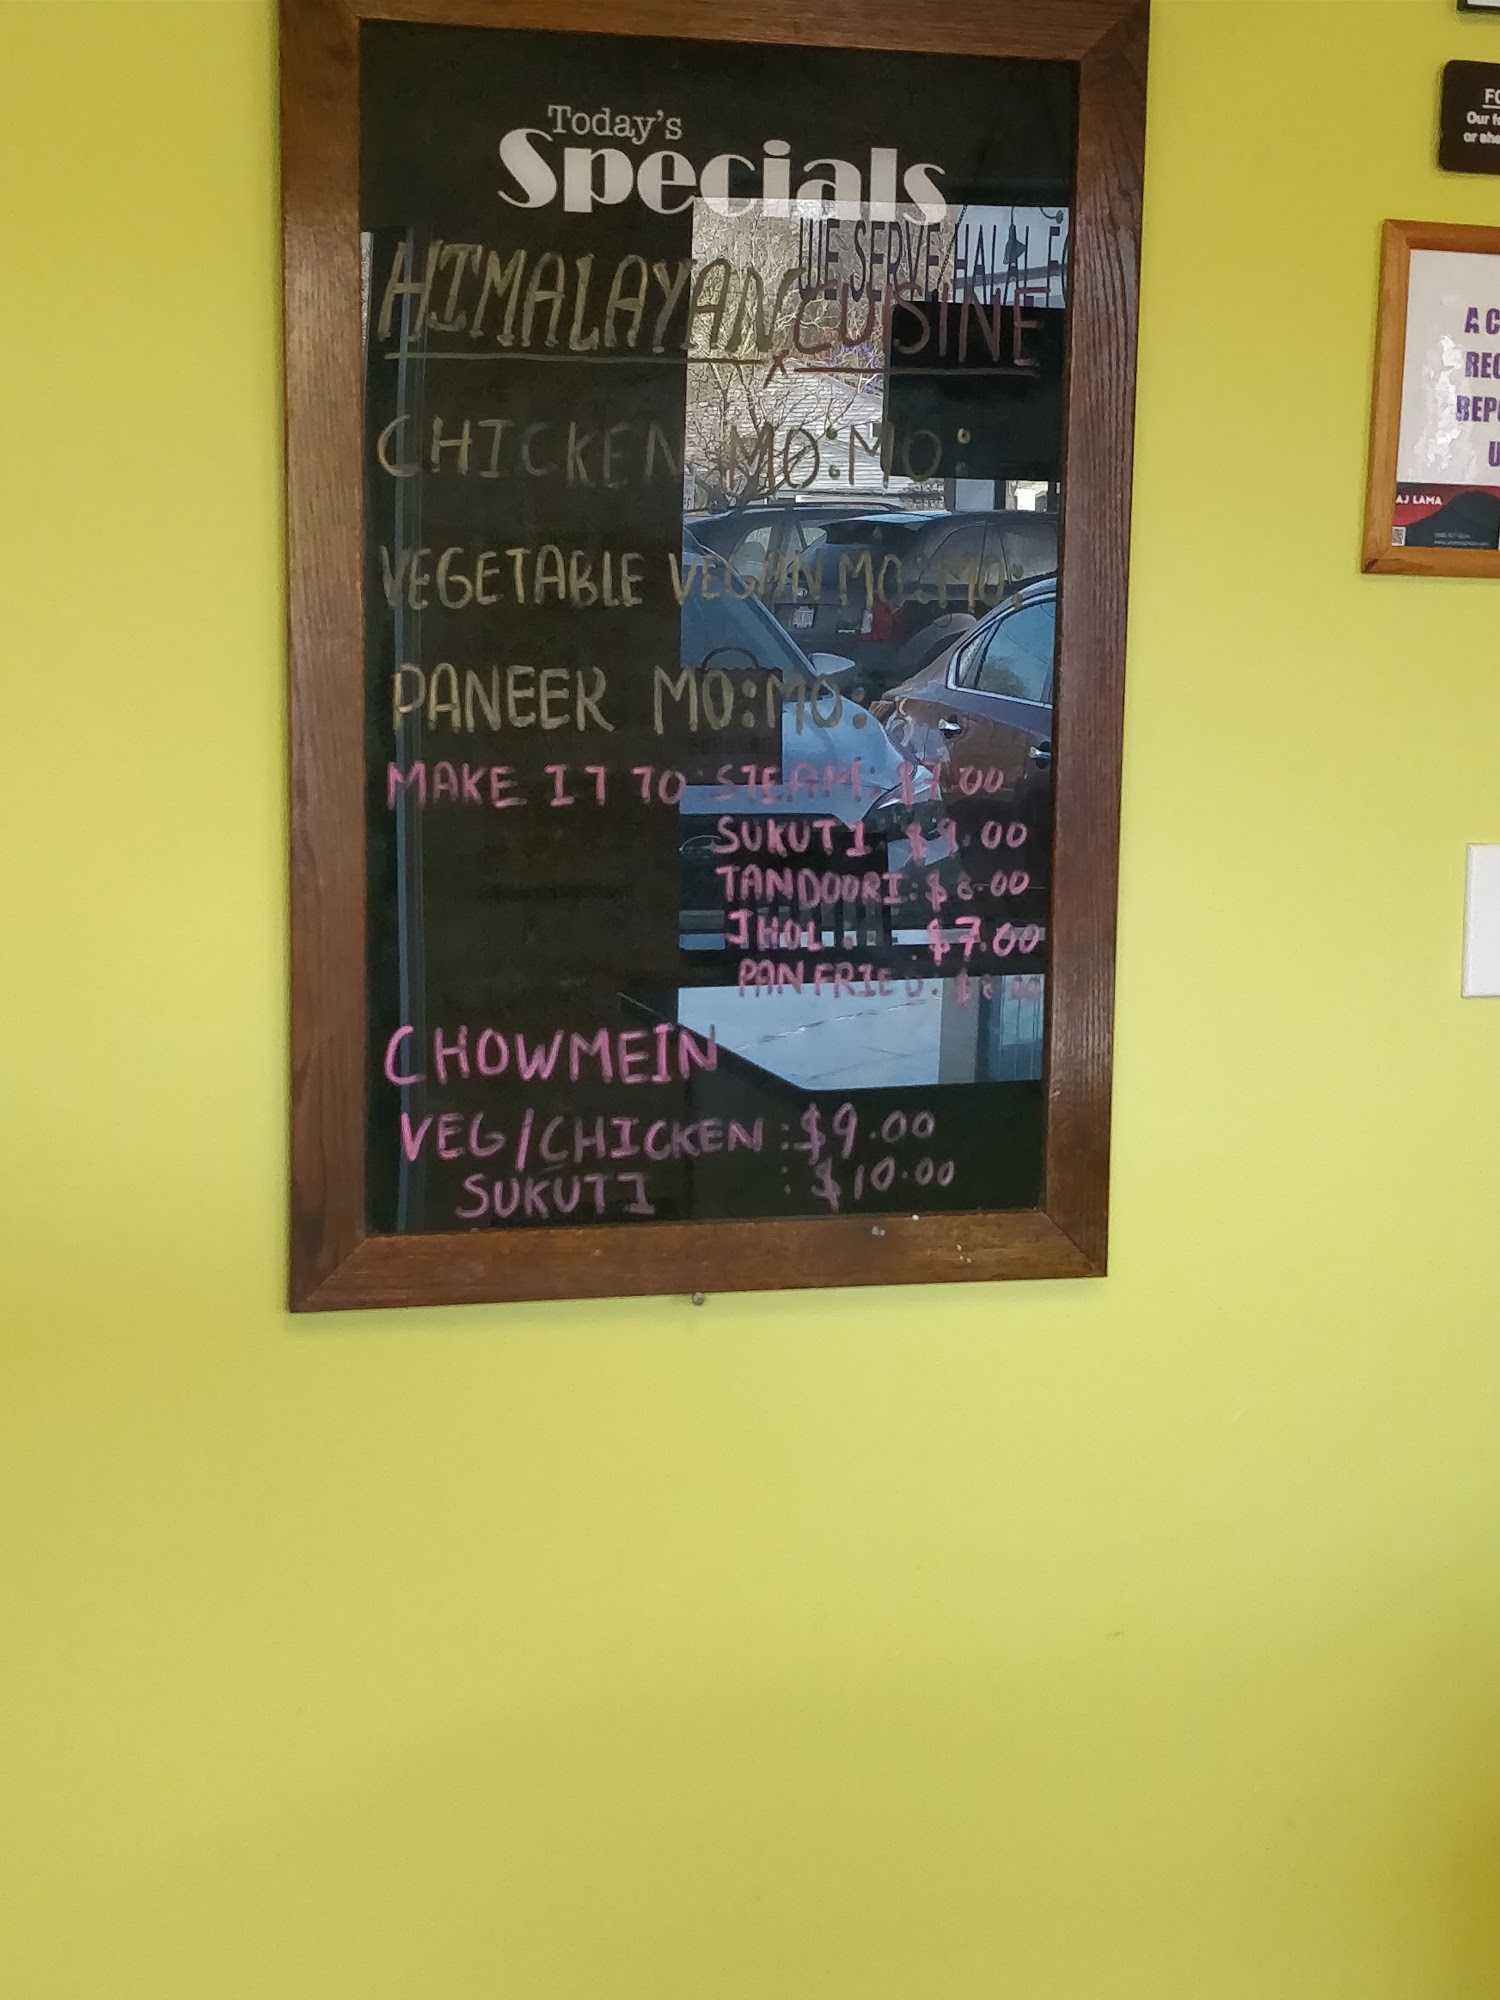 Today's
Specials
HIMALAYAN CUISINE
CHICKEN MO:MO:
VEGETABLE VEGAN MO:MO:
PANEER MO:MO:
MAKE IT TO: STEAM: $7.00
SUKUTI: $9.00
TANDOORI: $8.00
JHOL: $7.00
PAN FRIED: $8.00
CHOWMEIN
VEG/CHICKEN: $9.00
SUKUTI : $10.00
WE SERVE HALAL
Our
or
A
AJ LAMA